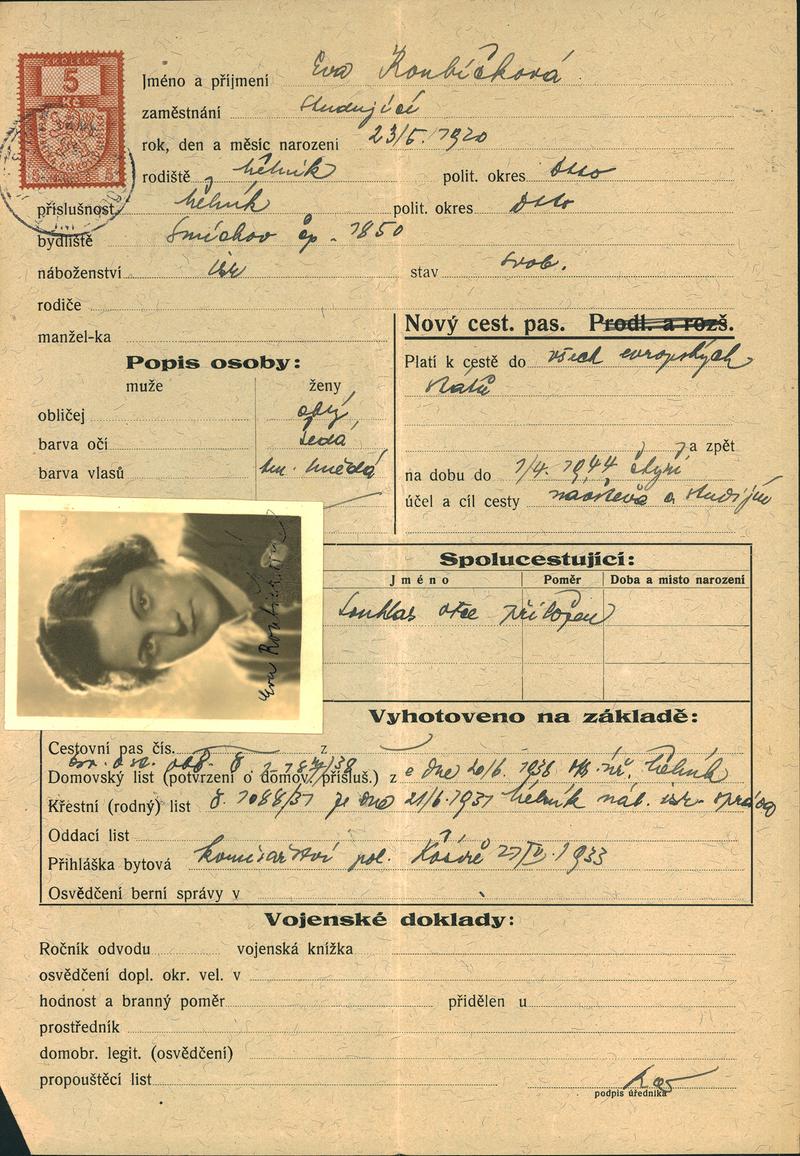 KOLEK
5
Kč
Jméno a příjmení Eva Roubíčková
zaměstnání studující
rok, den a měsíc narození 23/5. 1920
rodiště Mělník polit. okres dtto
příslušnost Mělník polit. okres dtto
bydliště Smíchov čp. 1850
náboženství isr stav svob.
rodiče
manžel-ka
Nový cest. pas. Prodl. a rozš.
Platí k cestě do všech evropských
států
a zpět
na dobu do 1/4. 1944 čtyři
účel a cíl cesty návštěva a studijní
Popis osoby:
muže ženy
obličej obl.
barva očí šedá
barva vlasů tm. hnědá
Eva Roubíčková
Spolucestující:
Jméno Poměr Doba a místo narození
Souhlas otce přiložen
Vyhotoveno na základě:
Cestovní pas čís. z
Domovský list (potvrzení o domov. přísluš.) z e dne 20/6. 1938 Mělník
Křestní (rodný) list č. 1088/31 ze dne 21/6. 1931 Mělník náb. isr.
Oddací list
Přihláška bytová komisařství pol. Košíře 27/IV. 1933
Osvědčení berní správy v
Vojenské doklady:
Ročník odvodu vojenská knížka
osvědčení dopl. okr. vel. v
hodnost a branný poměr přidělen u
prostředník
domobr. legit. (osvědčení)
propouštěcí list
podpis úředníka